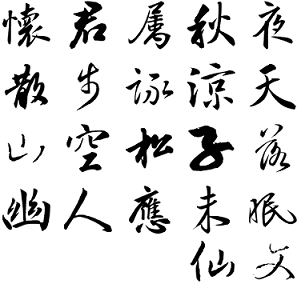 懷君属秋夜
散步詠涼天
山空松子落
幽人應未眠
仙文